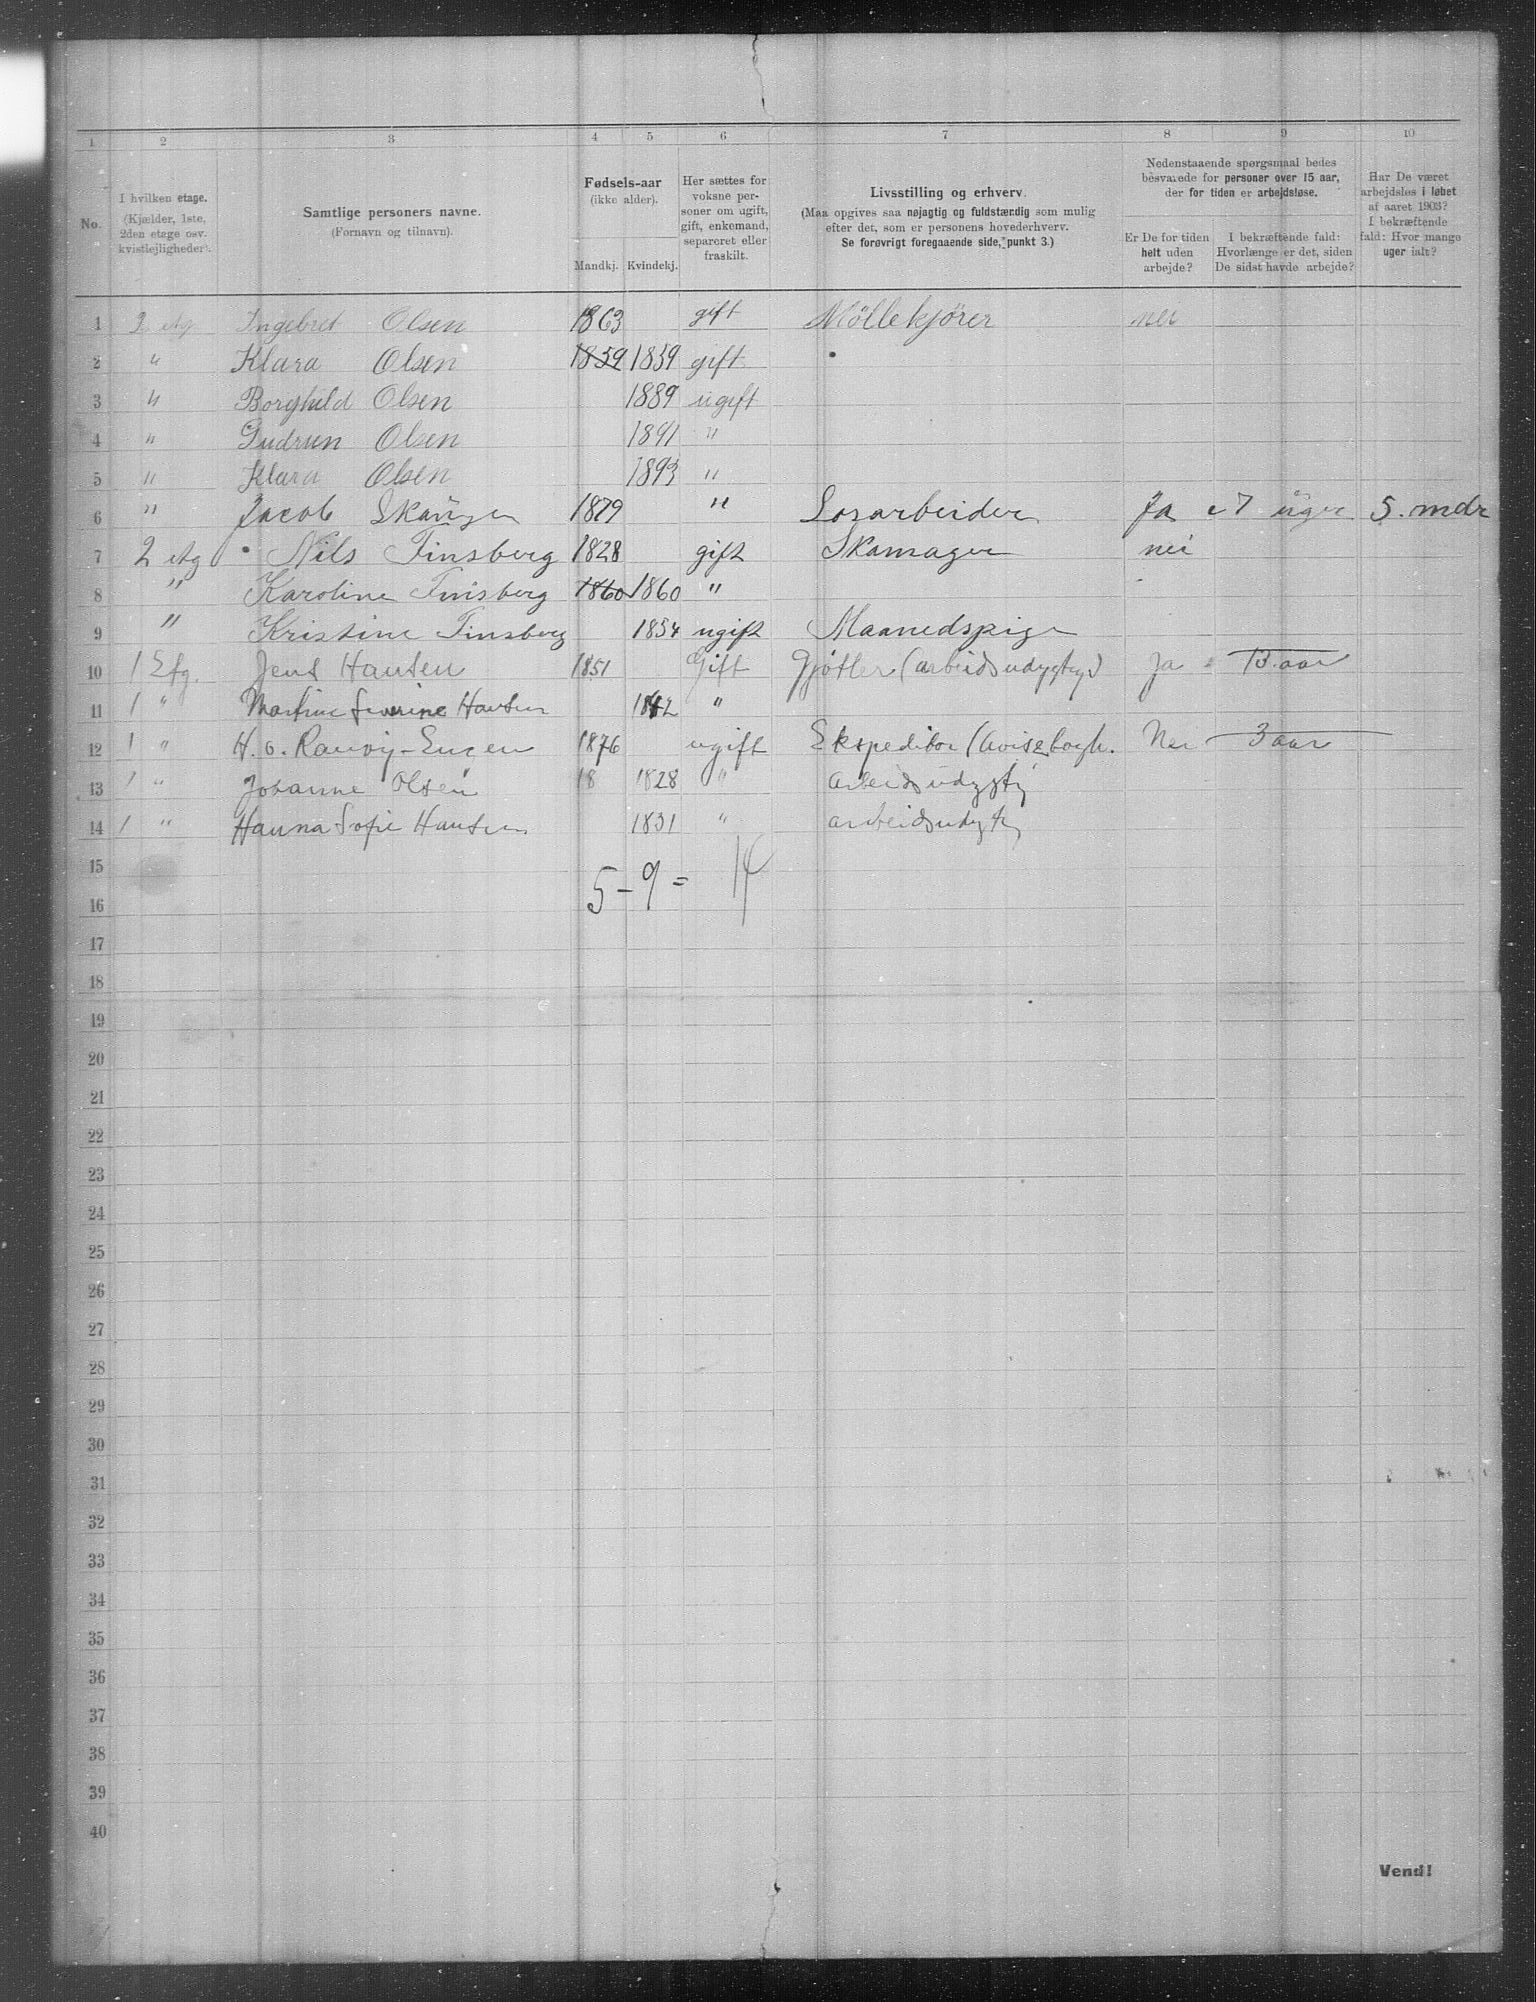 1 2 3 4 5 6 7 8 9 10
No.
I hvilken etage.
(Kjælder, 1ste,
2den etage osv.
kvistlejligheder).
Samtlige personers navne.
(Fornavn og tilnavn).
Fødsels-aar
(ikke alder).
Mandkj. Kvindekj.
Her sættes for
voksne per-
soner om ugift,
gift, enkemand,
separeret eller
fraskilt.
Livsstilling og erhverv.
(Maa opgives saa nøjagtig og fuldstændig som mulig
efter det, som er personens hovederhverv.
Se forøvrigt foregaaende side, punkt 3.)
Nedenstaaende spørgsmaal bedes
besvarede for personer over 15 aar,
der for tiden er arbejdsløse.
Er De for tiden
helt uden
arbejde?
I bekræftende fald:
Hvorlænge er det, siden
De sidst havde arbejde?
Har De været
arbejdsløs i løbet
af aaret 1903?
I bekræftende
fald: Hvor mange
uger ialt?
1 2 etg Ingebret Olsen 1863 gift Möllekjörer nei
2 " Klara Olsen 1859 1859 gift
3 " Borghild Olsen 1889 ugift
4 " Gudrun Olsen 1891 "
5 " Klara Olsen 1893 "
6 " Jacob 1879 " Losarbeider Ja 7 uger 5. mdr
7 2 etg Nils Finsberg 1828 gift Skomager nei
8 " Karoline Finsberg 1860 1860 "
9 " Kristine Finsberg 1854 ugift Maanedspige
10 1 Etg. Jens Hansen 1851 Gift Gjøtler (arbeidsudygtig) Ja 13. aar
11 1 " Martine Severine Hansen 1842 "
12 1 " H. o. 1876 ugift Ekspeditør (Avis Nei 3 aar
13 1 " Johanne Olsen 18 1828 " arbeidsudygtig
14 1 " Hanna Sofie Hansen 1831 " arbeidsudygtig
15
5 - 9 = 14
16
17
18
19
20
21
22
23
24
25
26
27
28
29
30
31
32
33
34
35
36
37
38
39
40
Vend!